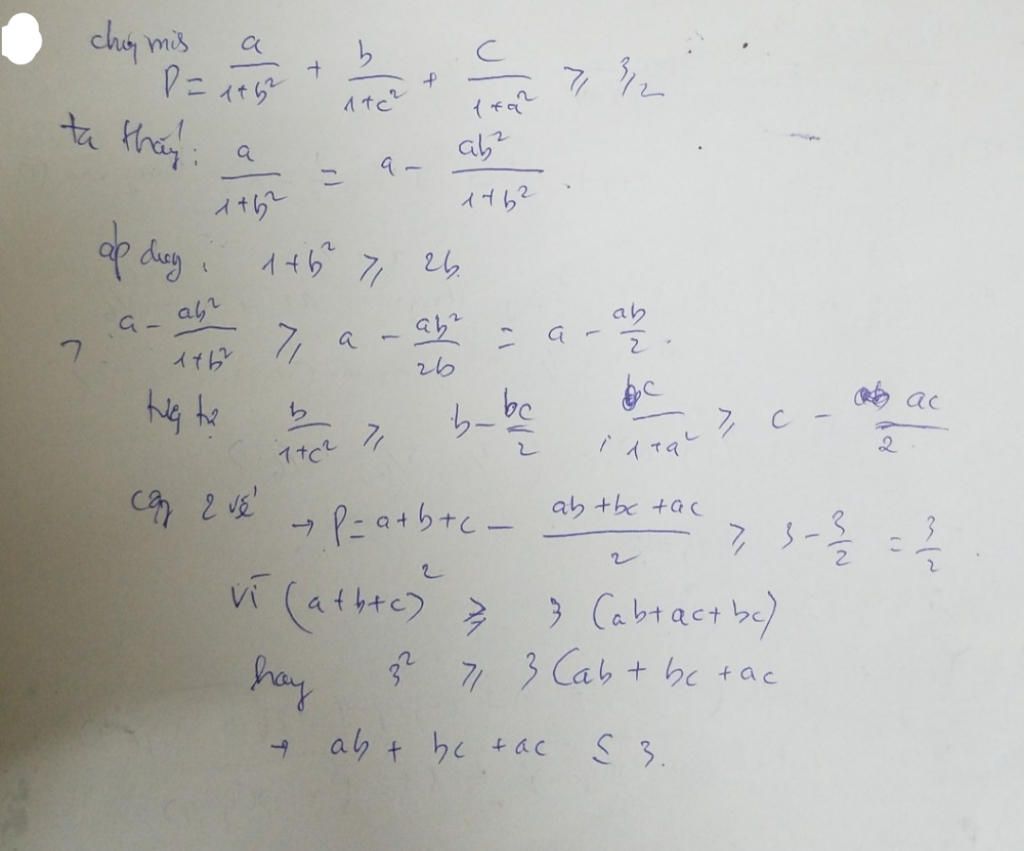 chứng mis
P = a/(1+b²) + b/(1+c²) + c/(1+a²) ≥ 3/2
ta thấy: a/(1+b²) = a - ab²/(1+b²).
áp dụng: 1+b² ≥ 2b.
a - ab²/(1+b²) ≥ a - ab²/2b = a - ab/2.
tương tự b/(1+c²) ≥ b - bc/2 ; c/(1+a²) ≥ c - ac/2
cộng 2 vế → P = a+b+c - (ab+bc+ac)/2 ≥ 3 - 3/2 = 3/2.
vì (a+b+c)² ≥ 3 (ab+ac+bc)
hay 3² ≥ 3(ab + bc + ac
→ ab + bc + ac ≤ 3.